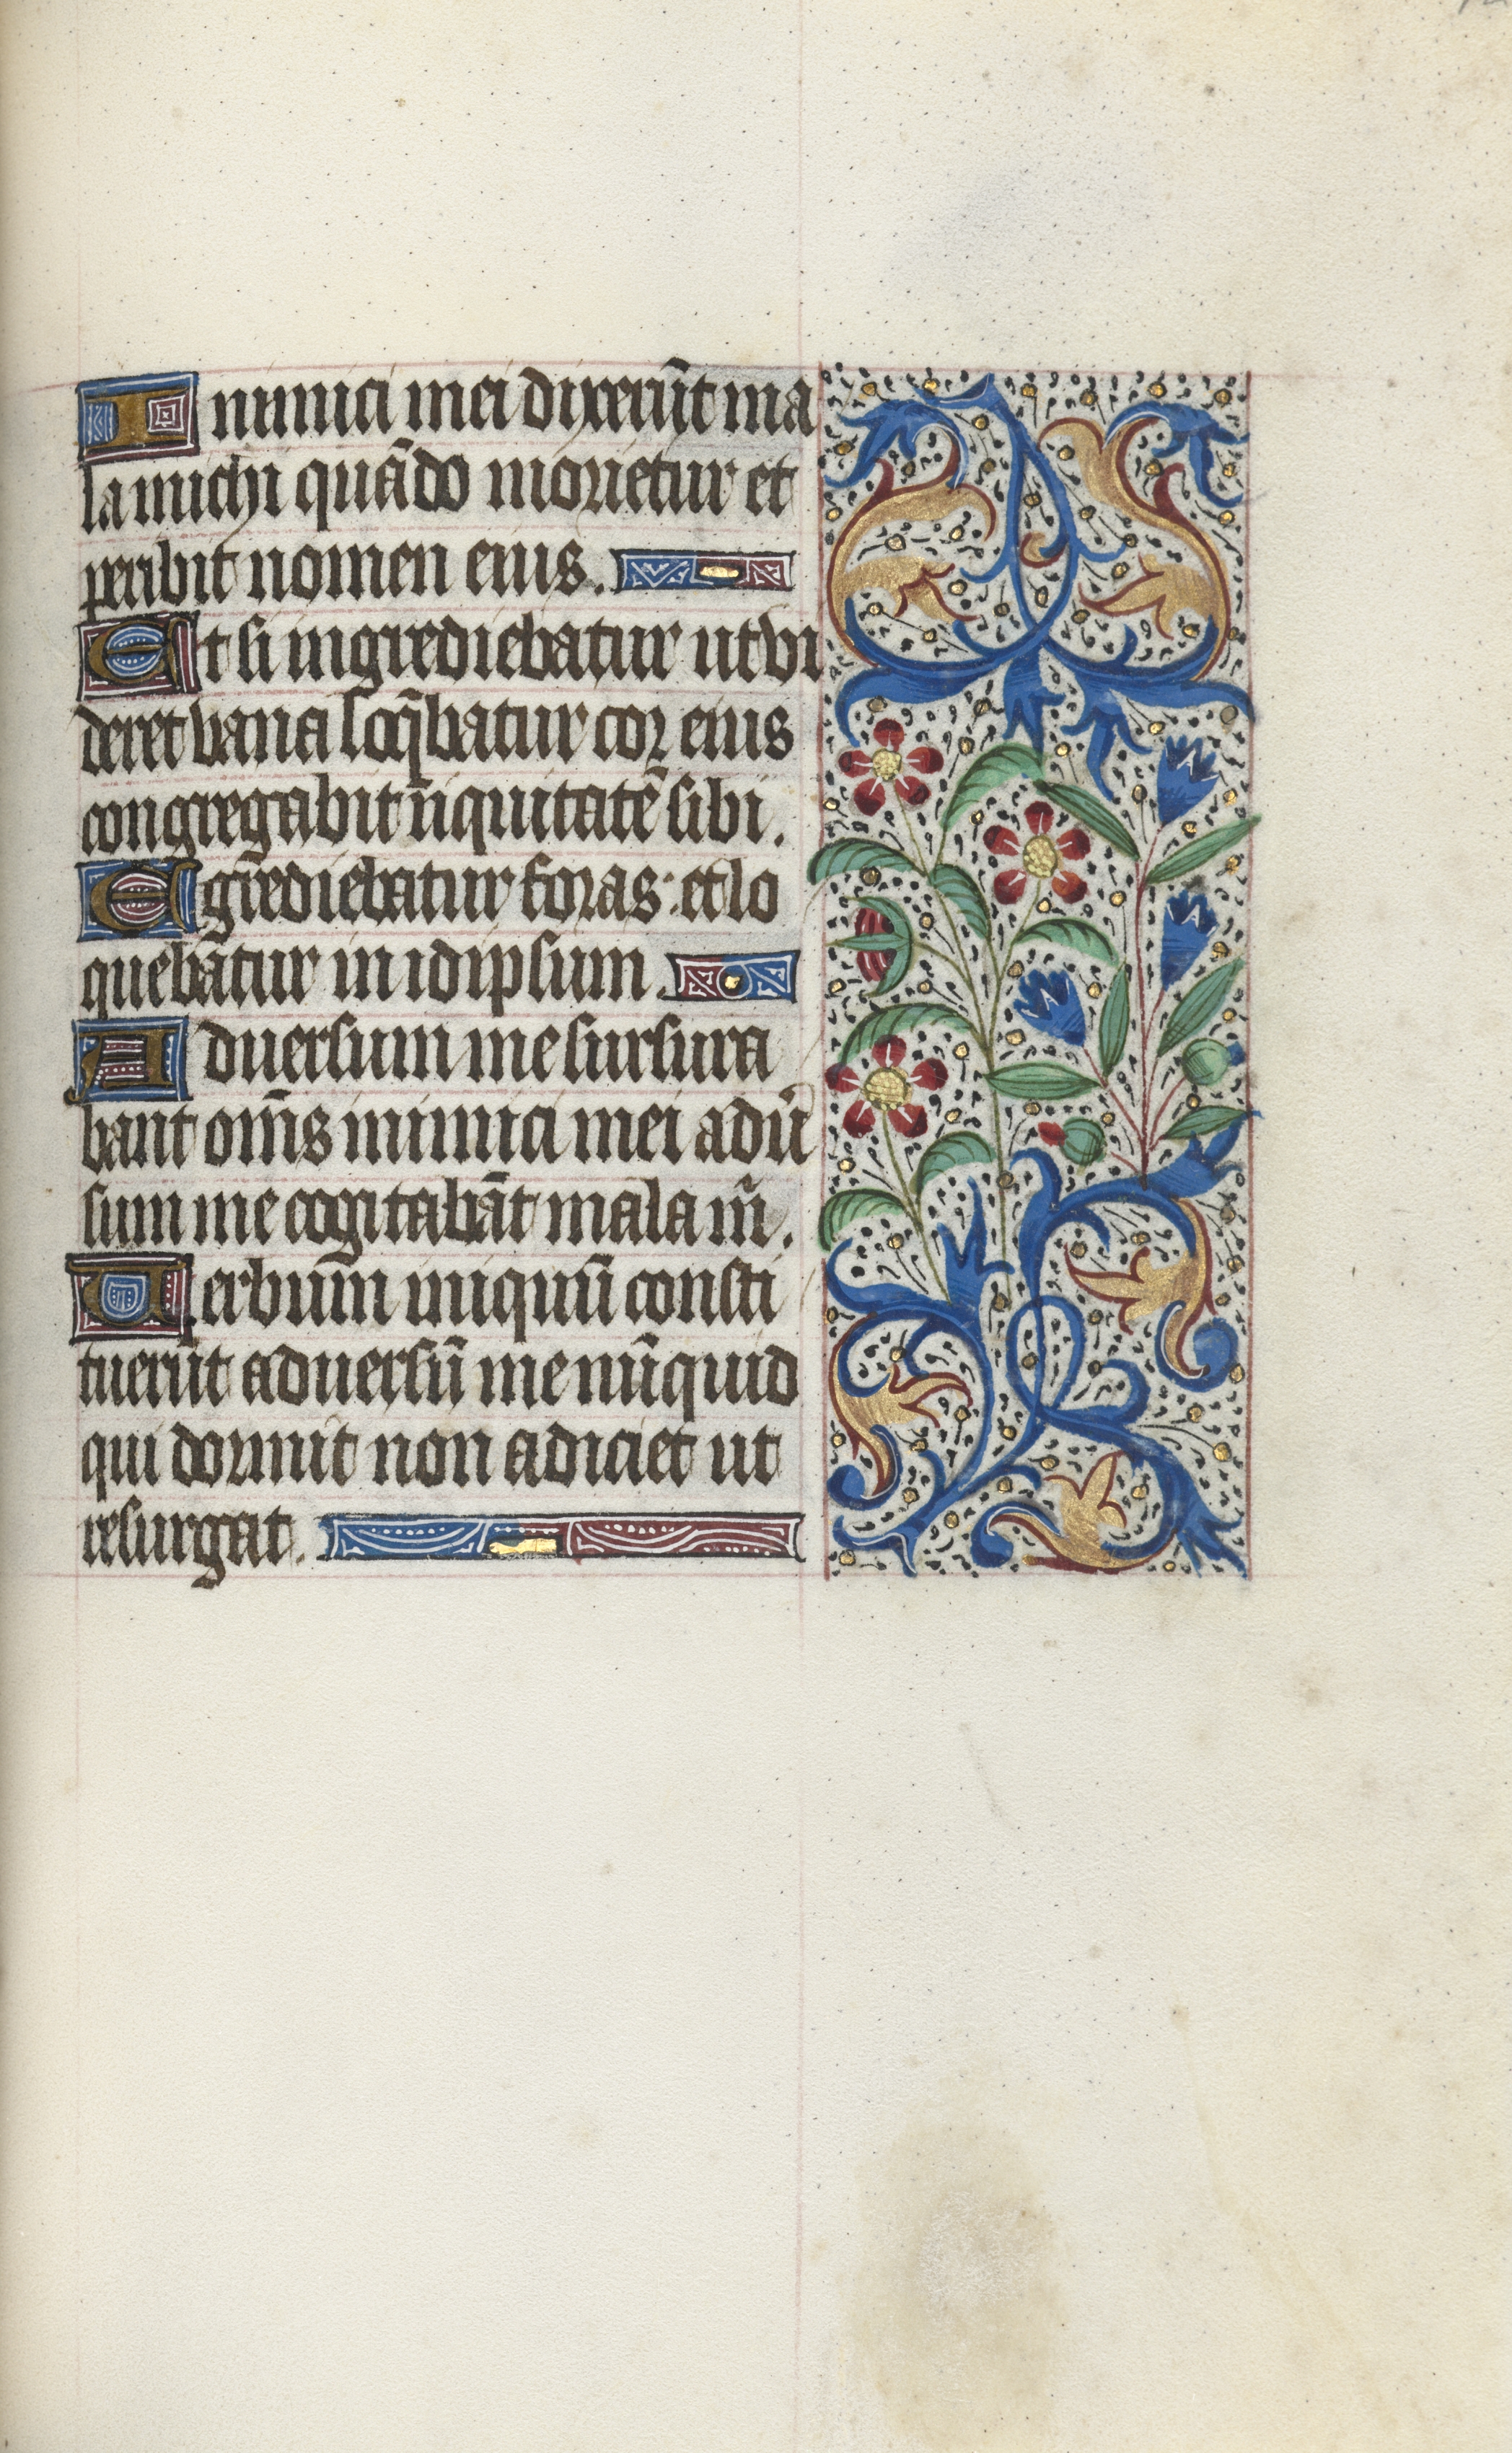 Inimici mei dixerūt ma
la michi quādo morietur et
peribit nomen eius.
Et si ingrediebatur ut vi
deret vana loq̄batur cor eius
congregabit iīquitatē sibi.
Egrēdiebatur foras: et lo
quebātur in idipsum.
Aduersum me sursura
bant om̄s inimici mei adū
sum me cogitabāt mala m̄.
Verbum iniquū consti
tuerūt aduersū me nūquid
qui dormit non adiciet ut
resurgat.